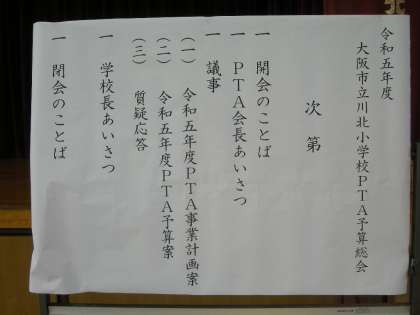 令和五年度
大阪市立川北小学校PTA予算総会
次第
一 開会のことば
一 PTA会長あいさつ
一 議事
(一) 令和五年度PTA事業計画案
(二) 令和五年度PTA予算案
(三) 質疑応答
一 学校長あいさつ
一 閉会のことば